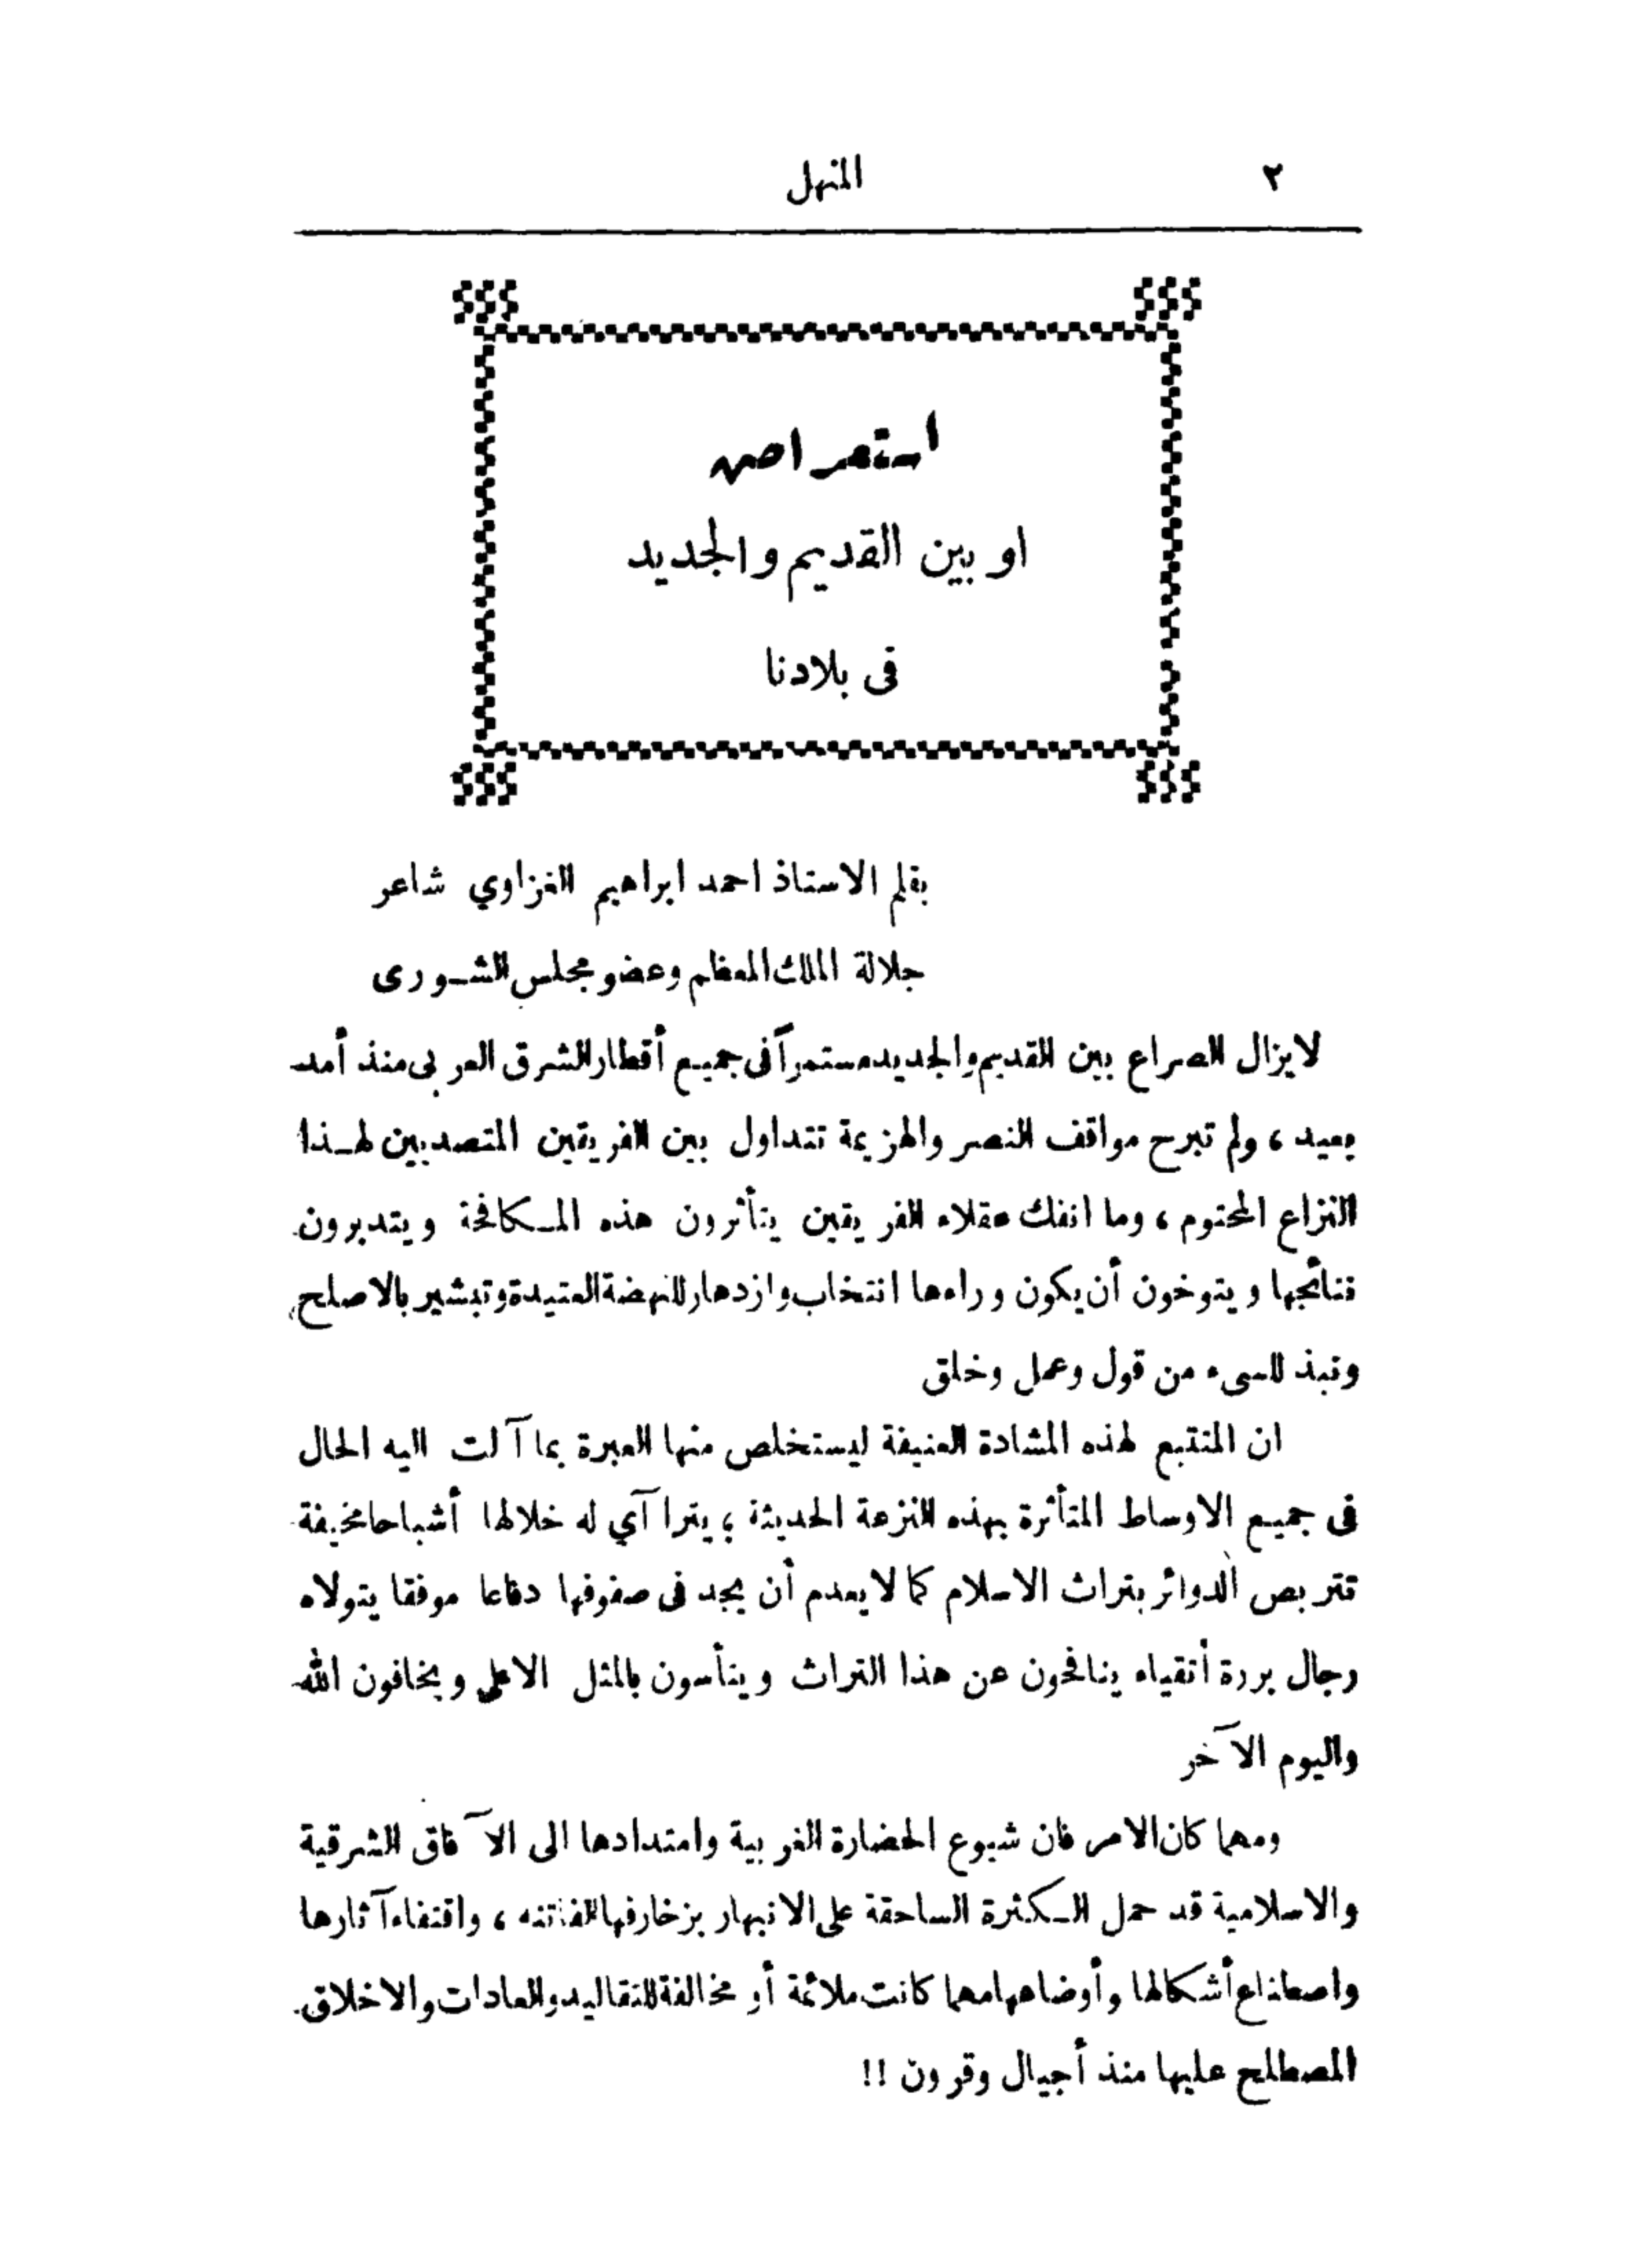 ٢
المنهل
استعراض
او بين القديم والجديد
فى بلادنا
بقلم الاستاذ احمد ابراهيم الغزاوي شاعر
جلالة الملك المعظم وعضو مجلس الشورى
لايزال الصراع بين القديم والجديد مستمرآ فى جميع أقطار الشرق العربى منذ أمد
بعيد ، ولم تبرح مواقف النصر والهزيمة تتداول بين الفريقين المتصديين لهذا
النزاع المحتوم ، وما انفك عقلاء الفريقين يتأثرون هذه المكافحة ويتدبرون
نتائجها ويتوخون أن يكون وراءها انتخاب وازدهار للنهضة العتيدة وتبشير بالاصلح
ونبذ للسىء من قول وعمل وخلق
ان المتتبع لهذه المشادة العنيفة ليستخلص منها العبرة بما آلت اليه الحال
فى جميع الاوساط المتأثرة بهذه النزعة الحديثة ؛ يترا آي له خلالها أشباحا مخيفة
تتربص الدوائر بتراث الاسلام كما لا يعدم أن يجد فى صفوفها دفاعا موفقا يتولاه
رجال بررة أتقياء ينافحون عن هذا التراث ويتأسون بالمثل الاعلى ويخافون الله
واليوم الآخر
ومهما كان الامر فان شيوع الحضارة الغربية وامتدادها الى الآفاق الشرقية
والاسلامية قد حمل الكثرة الساحقة على الانبهار بزخارفها الفاتنه ، واقتفاء آثارها
واصطناع أشكالها وأوضاعها مهما كانت ملائمة أو مخالفة للتقاليد والعادات والاخلاق
المصطلح عليها منذ أجيال وقرون !!